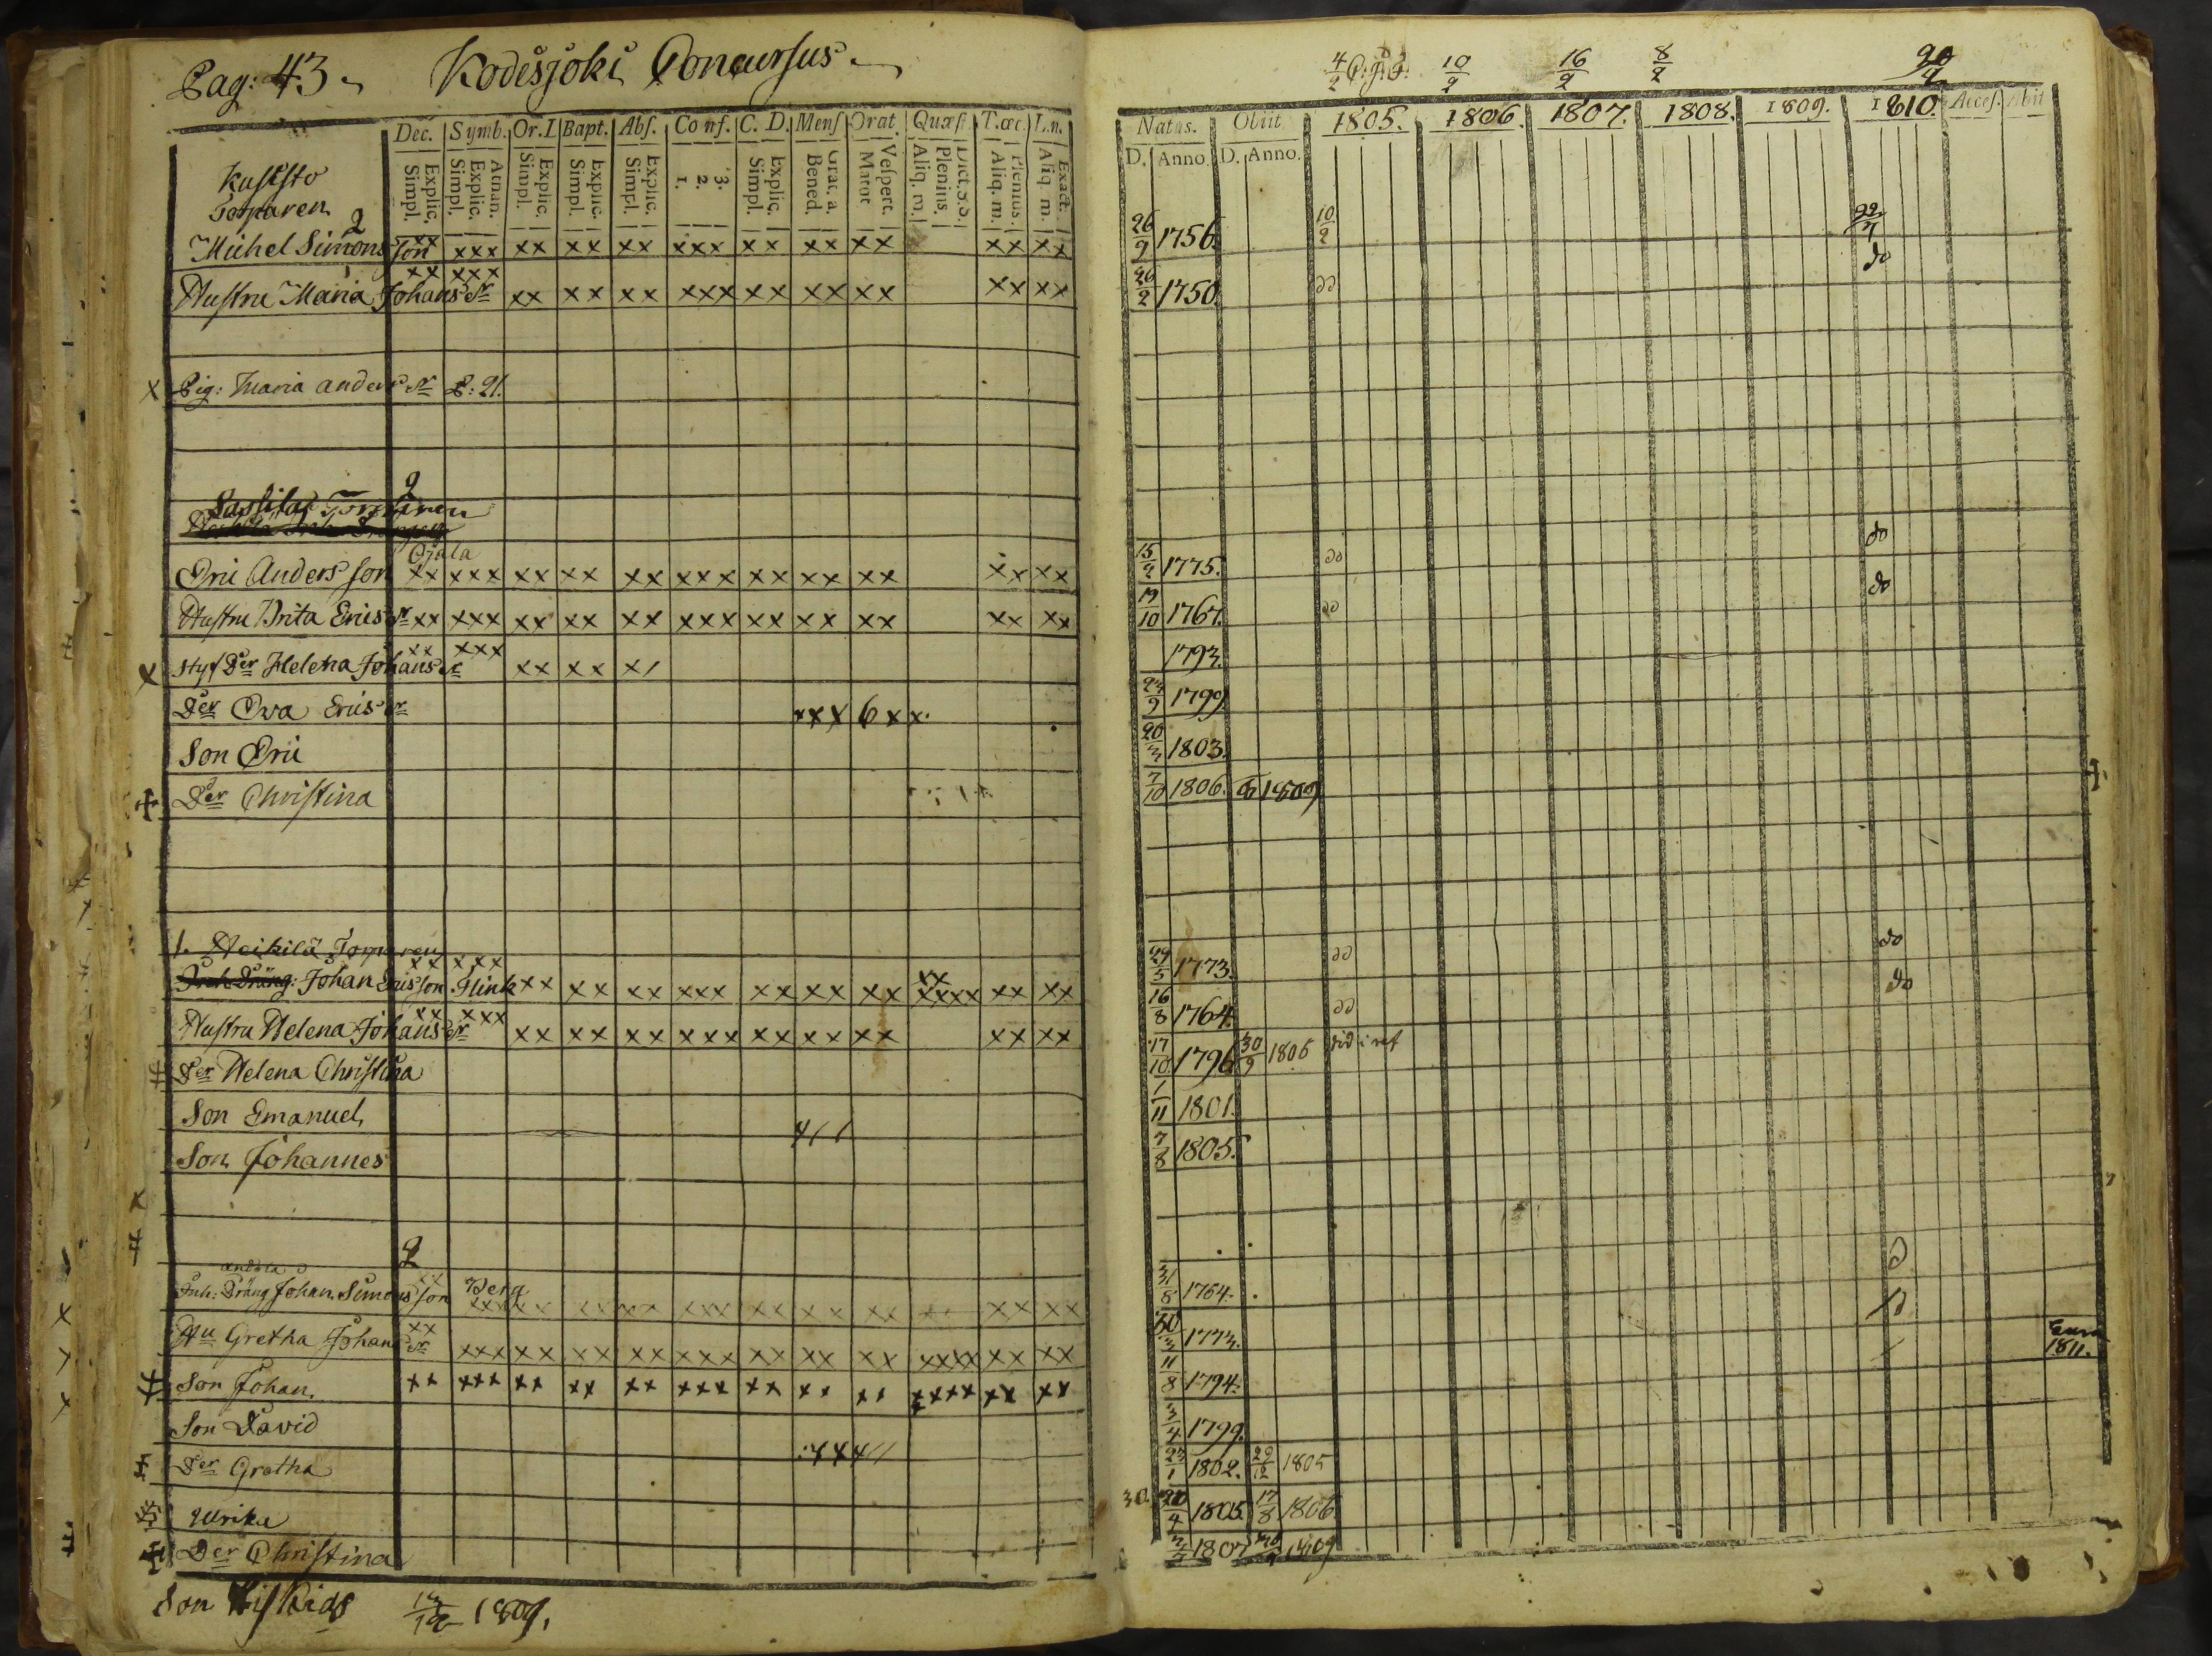 Pag: 43 Kodesjoki Concursus
Dec. Symb. Or. I Bapt. Abs. Conf. C. D. Mens Orat. Quæst. T. œc. L. n.
Explic. Simpl. Athan. Explic. Simpl. Explic. Simpl. Explic. Simpl. Explic. Simpl. 3. 2. 1. Explic. Simpl. Grat. a. Bened. Vespert. Matut. Dict. S. S. Plenius. Aliq. m. Plenius. Aliq. m. Exact. Aliq. m.
Torparen 2
Michel Simonsson xx xxx xx xx xx xxx xx xx xx xx xx
Hustru Maria Johans Dr xx xxx xx xx xx xxx xx xx xx xx xx
x Pig: Maria Anders Dr P: 21.
2
Torparen
Ojala
Eric Andersson xx xxx xx xx xx xxx xx xx xx xx xx
Hustru Brita Erics Dr xx xxx xx xx xx xxx xx xx xx xx xx
x styf Der Helena Johans Dr xx xxx xx xx x/
Der Eva Erics Dr xxx 6xx.
Son Eric
Der Christina
1. Heikilä Torparen
Inh. Dräng: Johan Ericsson Flink xx xxx xx xx xx xxx xx xx xx xx xxxx xx xx
Hustru Helena Johans Dr xx xxx xx xx xx xxx xx xx xx xx xx
Der Helena Christina
Son Emanuel
Son Johannes
2
Inh: Dräng Johan Simonsson Berg xx xxx xx xx xx xxx xx xx xx xx xx
Hu Gretha Johans Dr xx xxx xx xx xx xxx xx xx xx xxxx xx xx
Son Johan xx xxx xx xx xx xxx xx xx xx xxxx xx xx
Son David
Der Gretha
Ulrika
Der Christina
Son 1809.
4/2 10/2 16/2 8/2 20/2
Natus. Obiit 1805. 1806. 1807. 1808. 1809. 1810. Acces. Abit
D. Anno. D. Anno.
26/9 1756. 10/2 22/7
26/2 1750. do do
15/2 1775. do do
19/10 1767. do do
1793.
23/9 1799
20/3 1803.
7/10 1806. 1809
29/5 1773. do do
16/8 1764. do do
17/10 1796 30/9 1805
1/11 1801.
7/8 1805.
31/8 1764.
30/3 1773.
11/8 1794. 1811.
3/4 1799.
23/1 1802. 29/12 1805
20/4 1805 17/8 1806
1807 1809